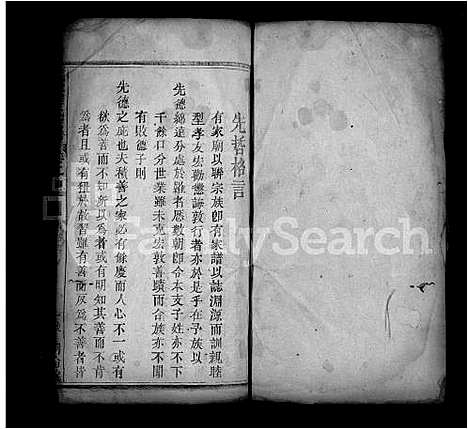 先哲格言
有家廟以聯宗族卽有家譜以誌淵源而訓親睦
型孝友宏勸懲誨敦行者亦於是乎在予族以
先德綿遠分處於雖者歷數朝卽合本支子姓亦不下
千餘口分世業雖未克宏敦善蹟而合族亦不聞
有敗德子則
先德之庇也夫積善之家必有餘慶而人心不一或有
欲爲善而不知所以爲者或有明知其善而不肯
爲者且或有狃於故習雖有善而反爲不善者皆
FamilySearch